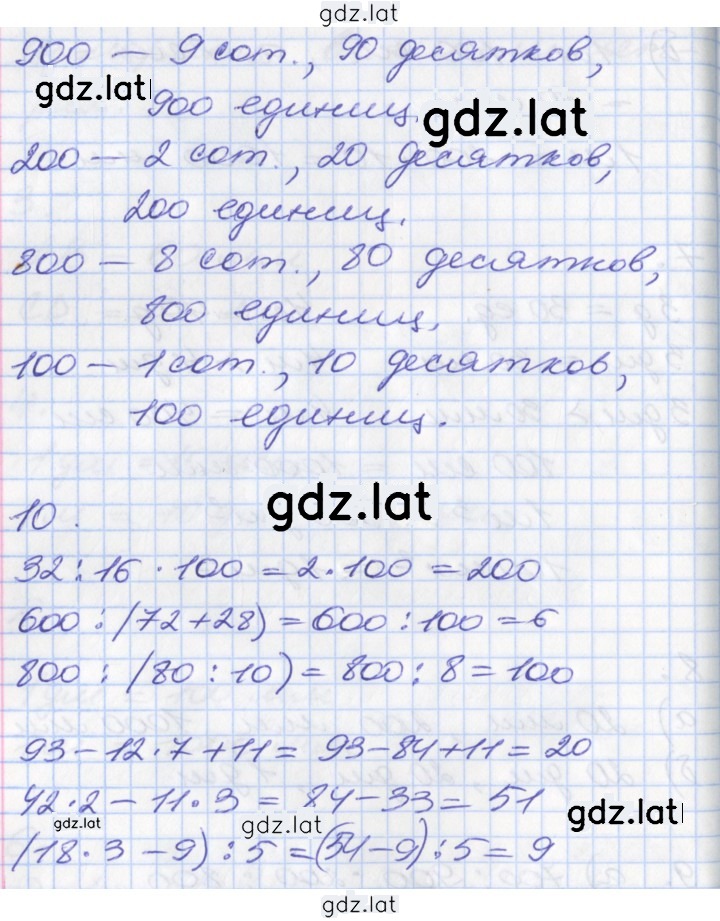 gdz.lat
900 — 9 сот., 90 десятков,
gdz.lat
900 единиц.
gdz.lat
200 — 2 сот., 20 десятков,
200 единиц.
800 — 8 сот., 80 десятков,
800 единиц.
100 — 1 сот., 10 десятков,
100 единиц.
gdz.lat
10.
32 : 16 · 100 = 2 · 100 = 200
600 : (72 + 28) = 600 : 100 = 6
800 : (80 : 10) = 800 : 8 = 100
93 − 12 · 7 + 11 = 93 − 84 + 11 = 20
42 · 2 − 11 · 3 = 84 − 33 = 51
gdz.lat gdz.lat gdz.lat
(18 · 3 − 9) : 5 = (54 − 9) : 5 = 9
gdz.lat